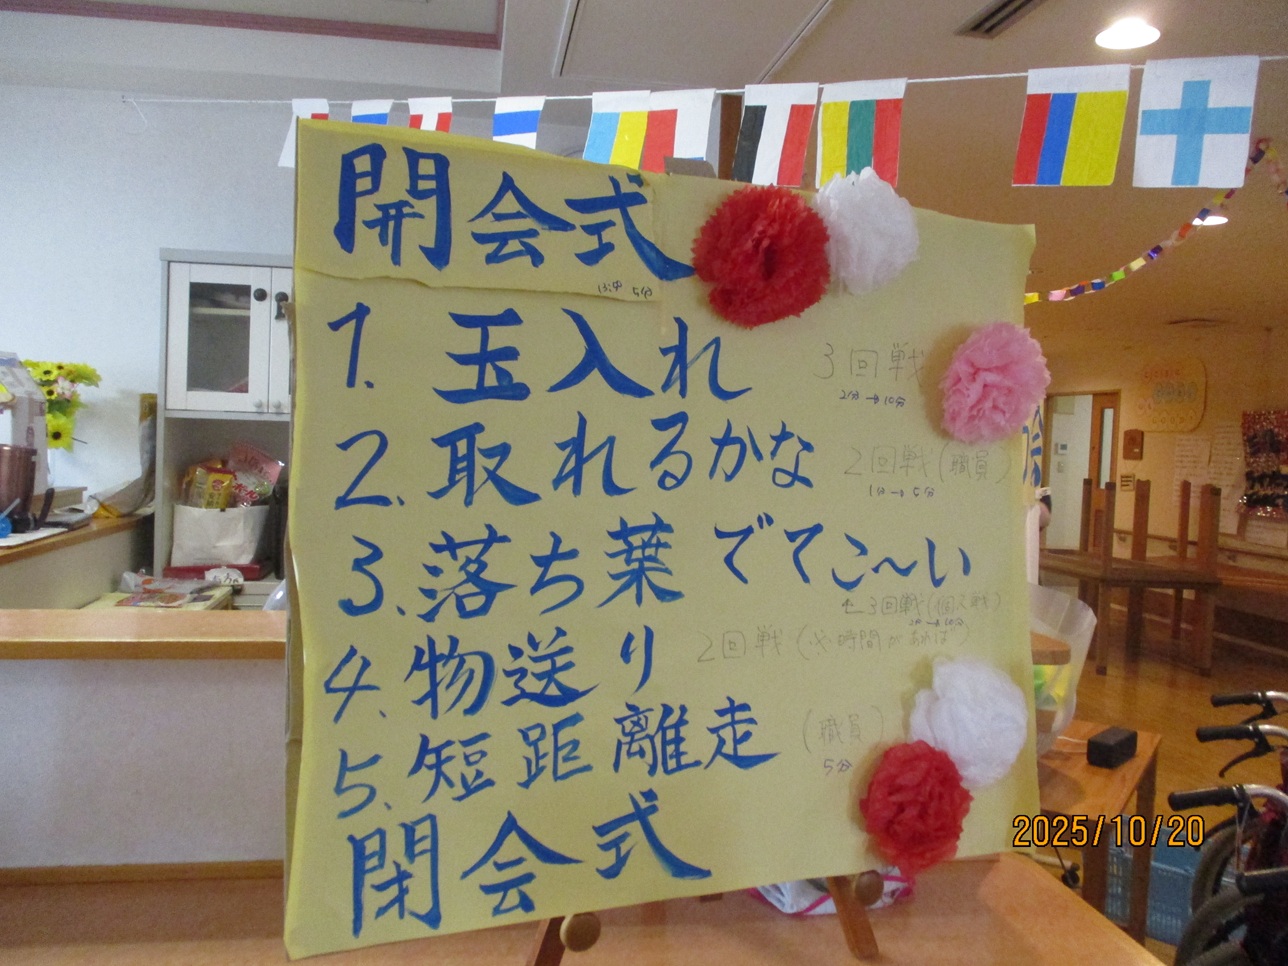 開会式
5分
1. 玉入れ 3回戦
2分→10分
2. 取れるかな 2回戦(職員)
1分→5分
3. 落ち葉 でてこ〜い
←3回戦(個人戦)
4. 物送り 2回戦(※時間があれば)
5. 短距離走 (職員)
5分
閉会式
2025/10/20